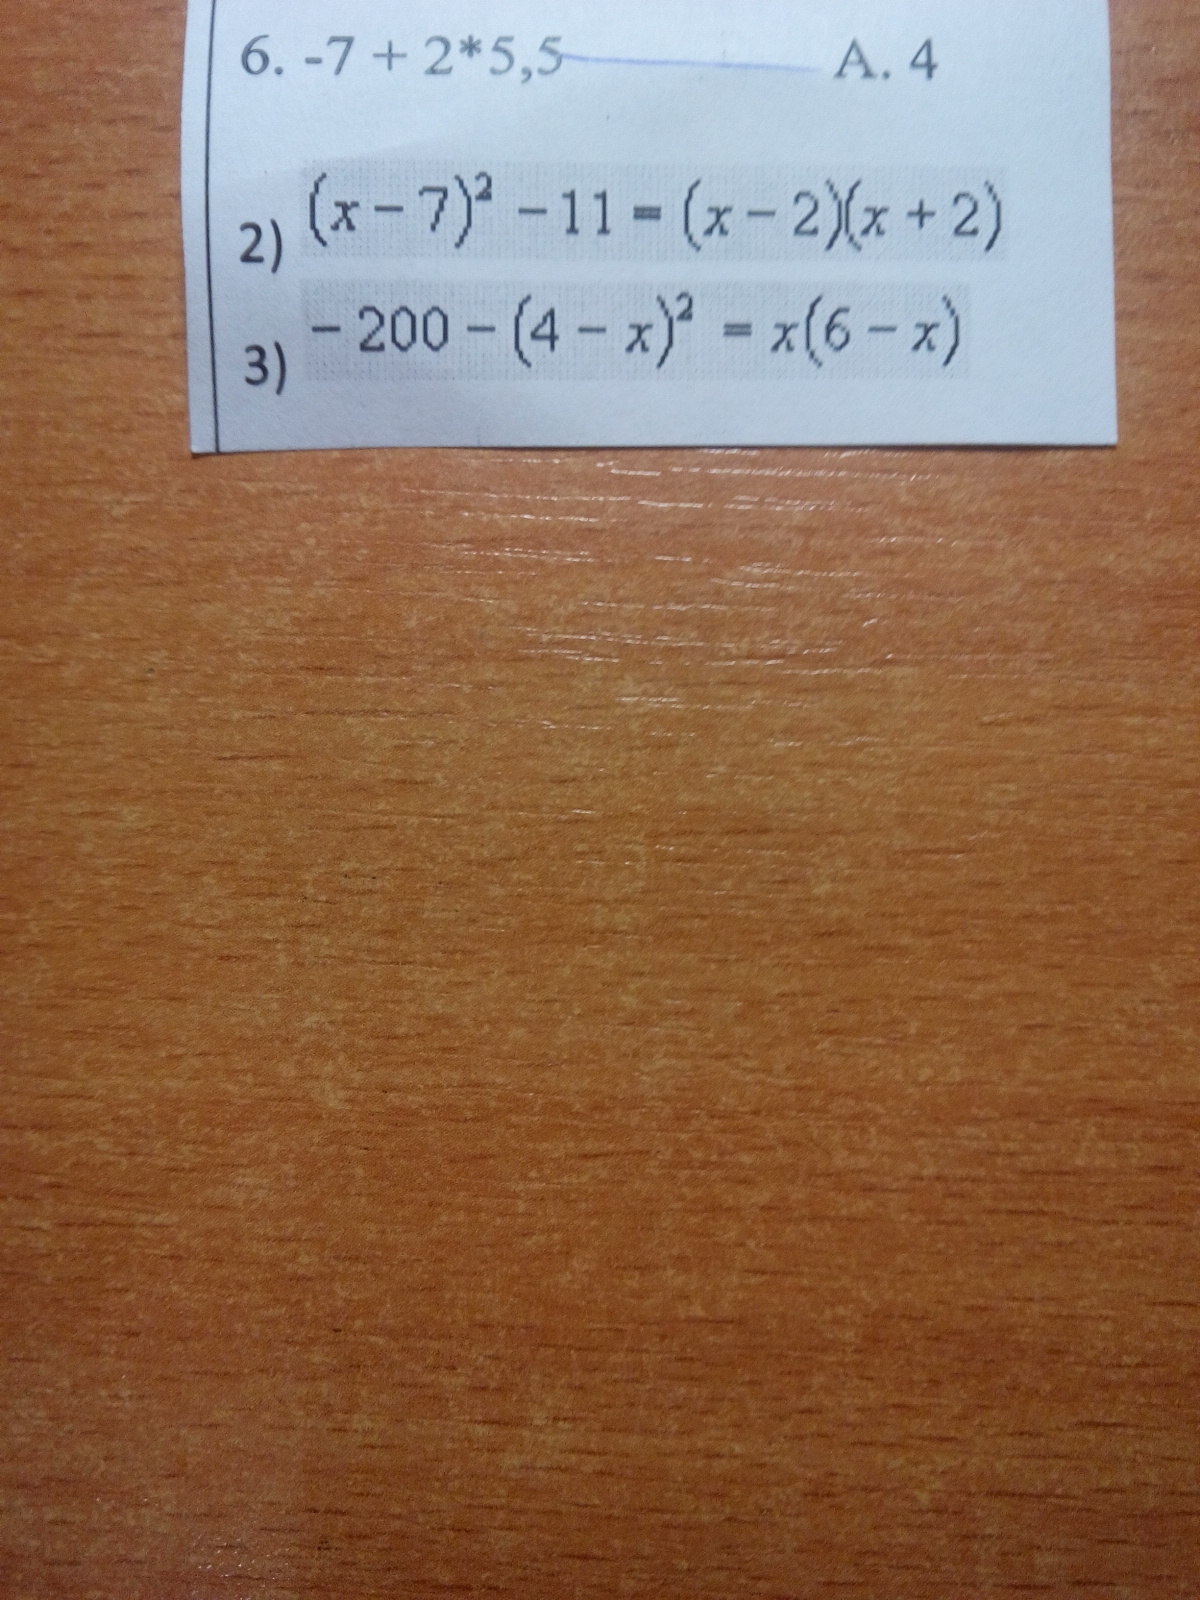 6. -7 + 2*5,5 A. 4
2) (x − 7)² − 11 = (x − 2)(x + 2)
3) − 200 − (4 − x)² = x(6 − x)